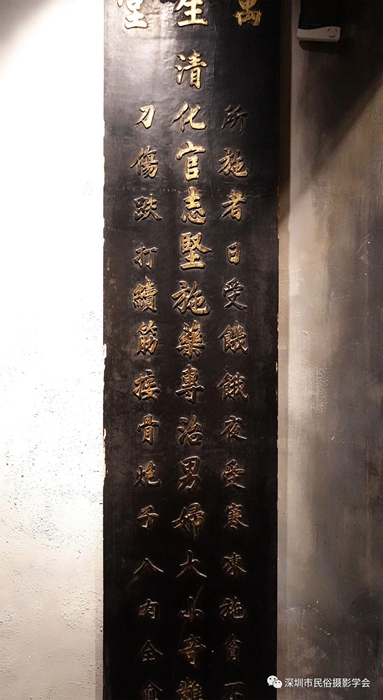 萬生堂
所施者日受饑餓夜受寒凍施
清化官志堅施藥專治男婦大小奇難
刀傷跌打續筋接骨炮子入肉全愈
深圳市民俗摄影学会